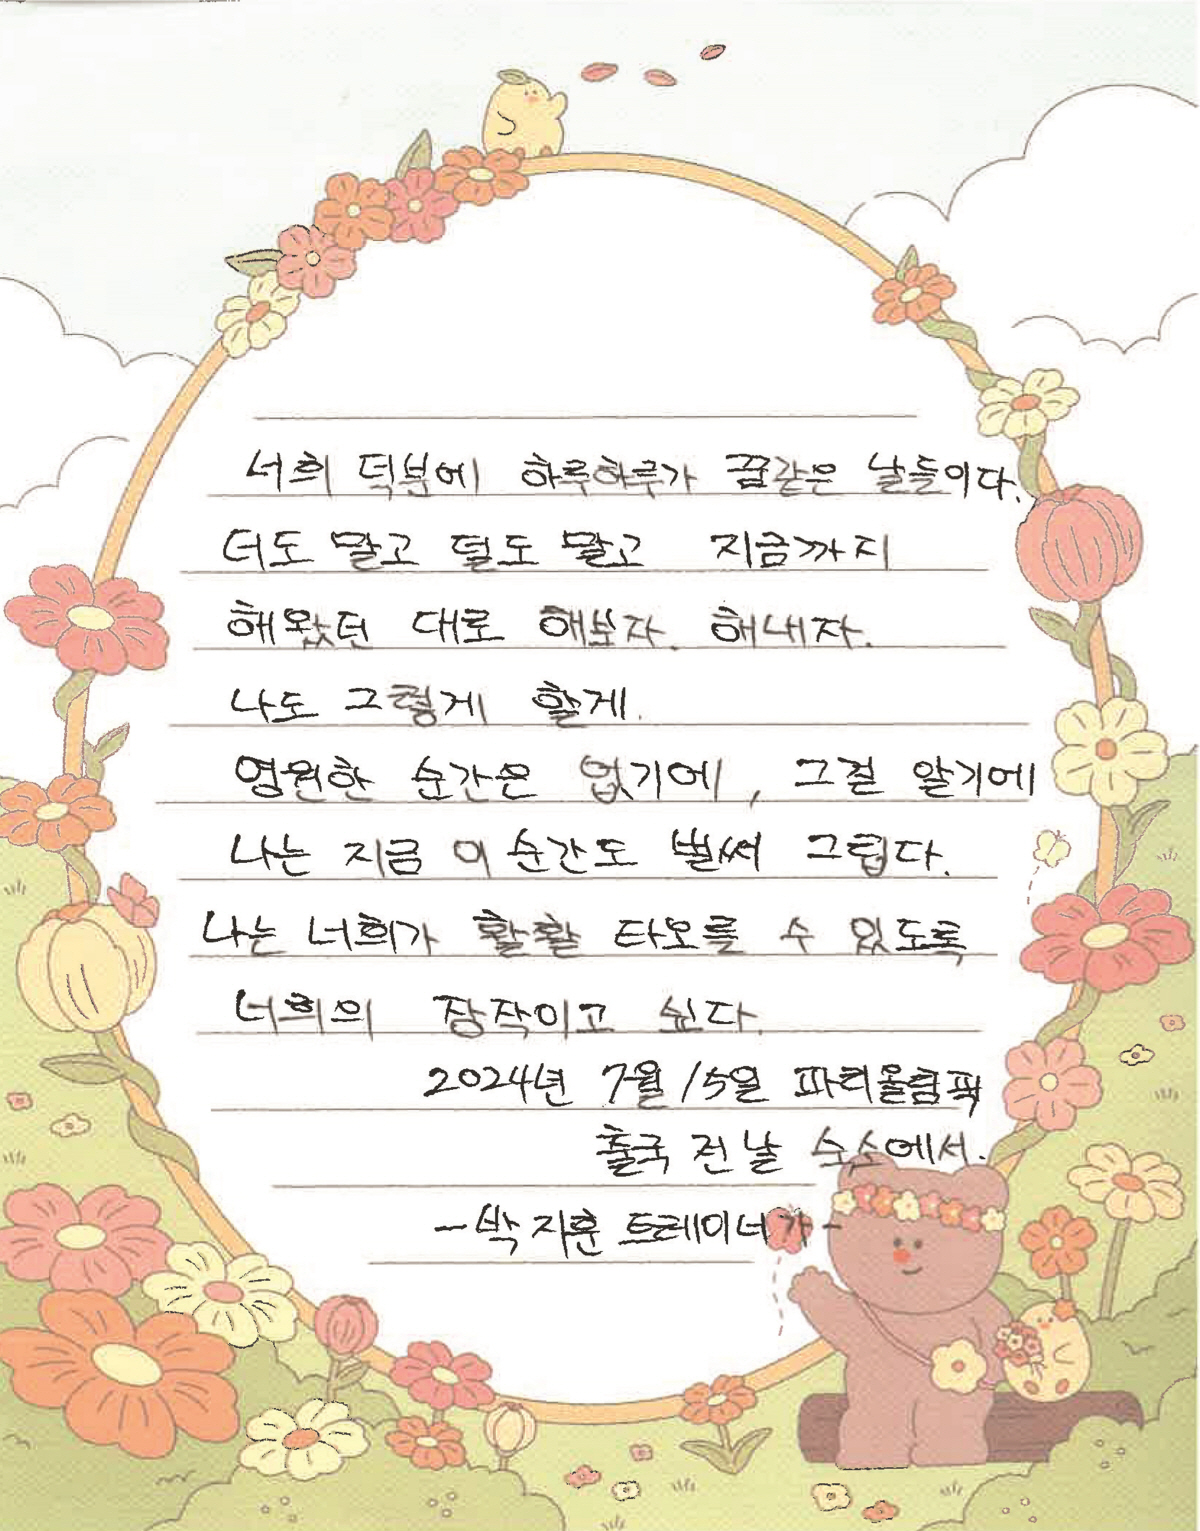 너희 덕분에 하루하루가 꿈같은 날들이다.
더도 말고 덜도 말고 지금까지
해왔던 대로 해보자. 해내자.
나도 그렇게 할게.
영원한 순간은 없기에, 그걸 알기에
나는 지금 이 순간도 벌써 그립다.
나는 너희가 활활 타오를 수 있도록
너희의 장작이고 싶다.
2024년 7월 15일 파리올림픽
출국 전 날 숙소에서.
-박지훈 트레이너가-